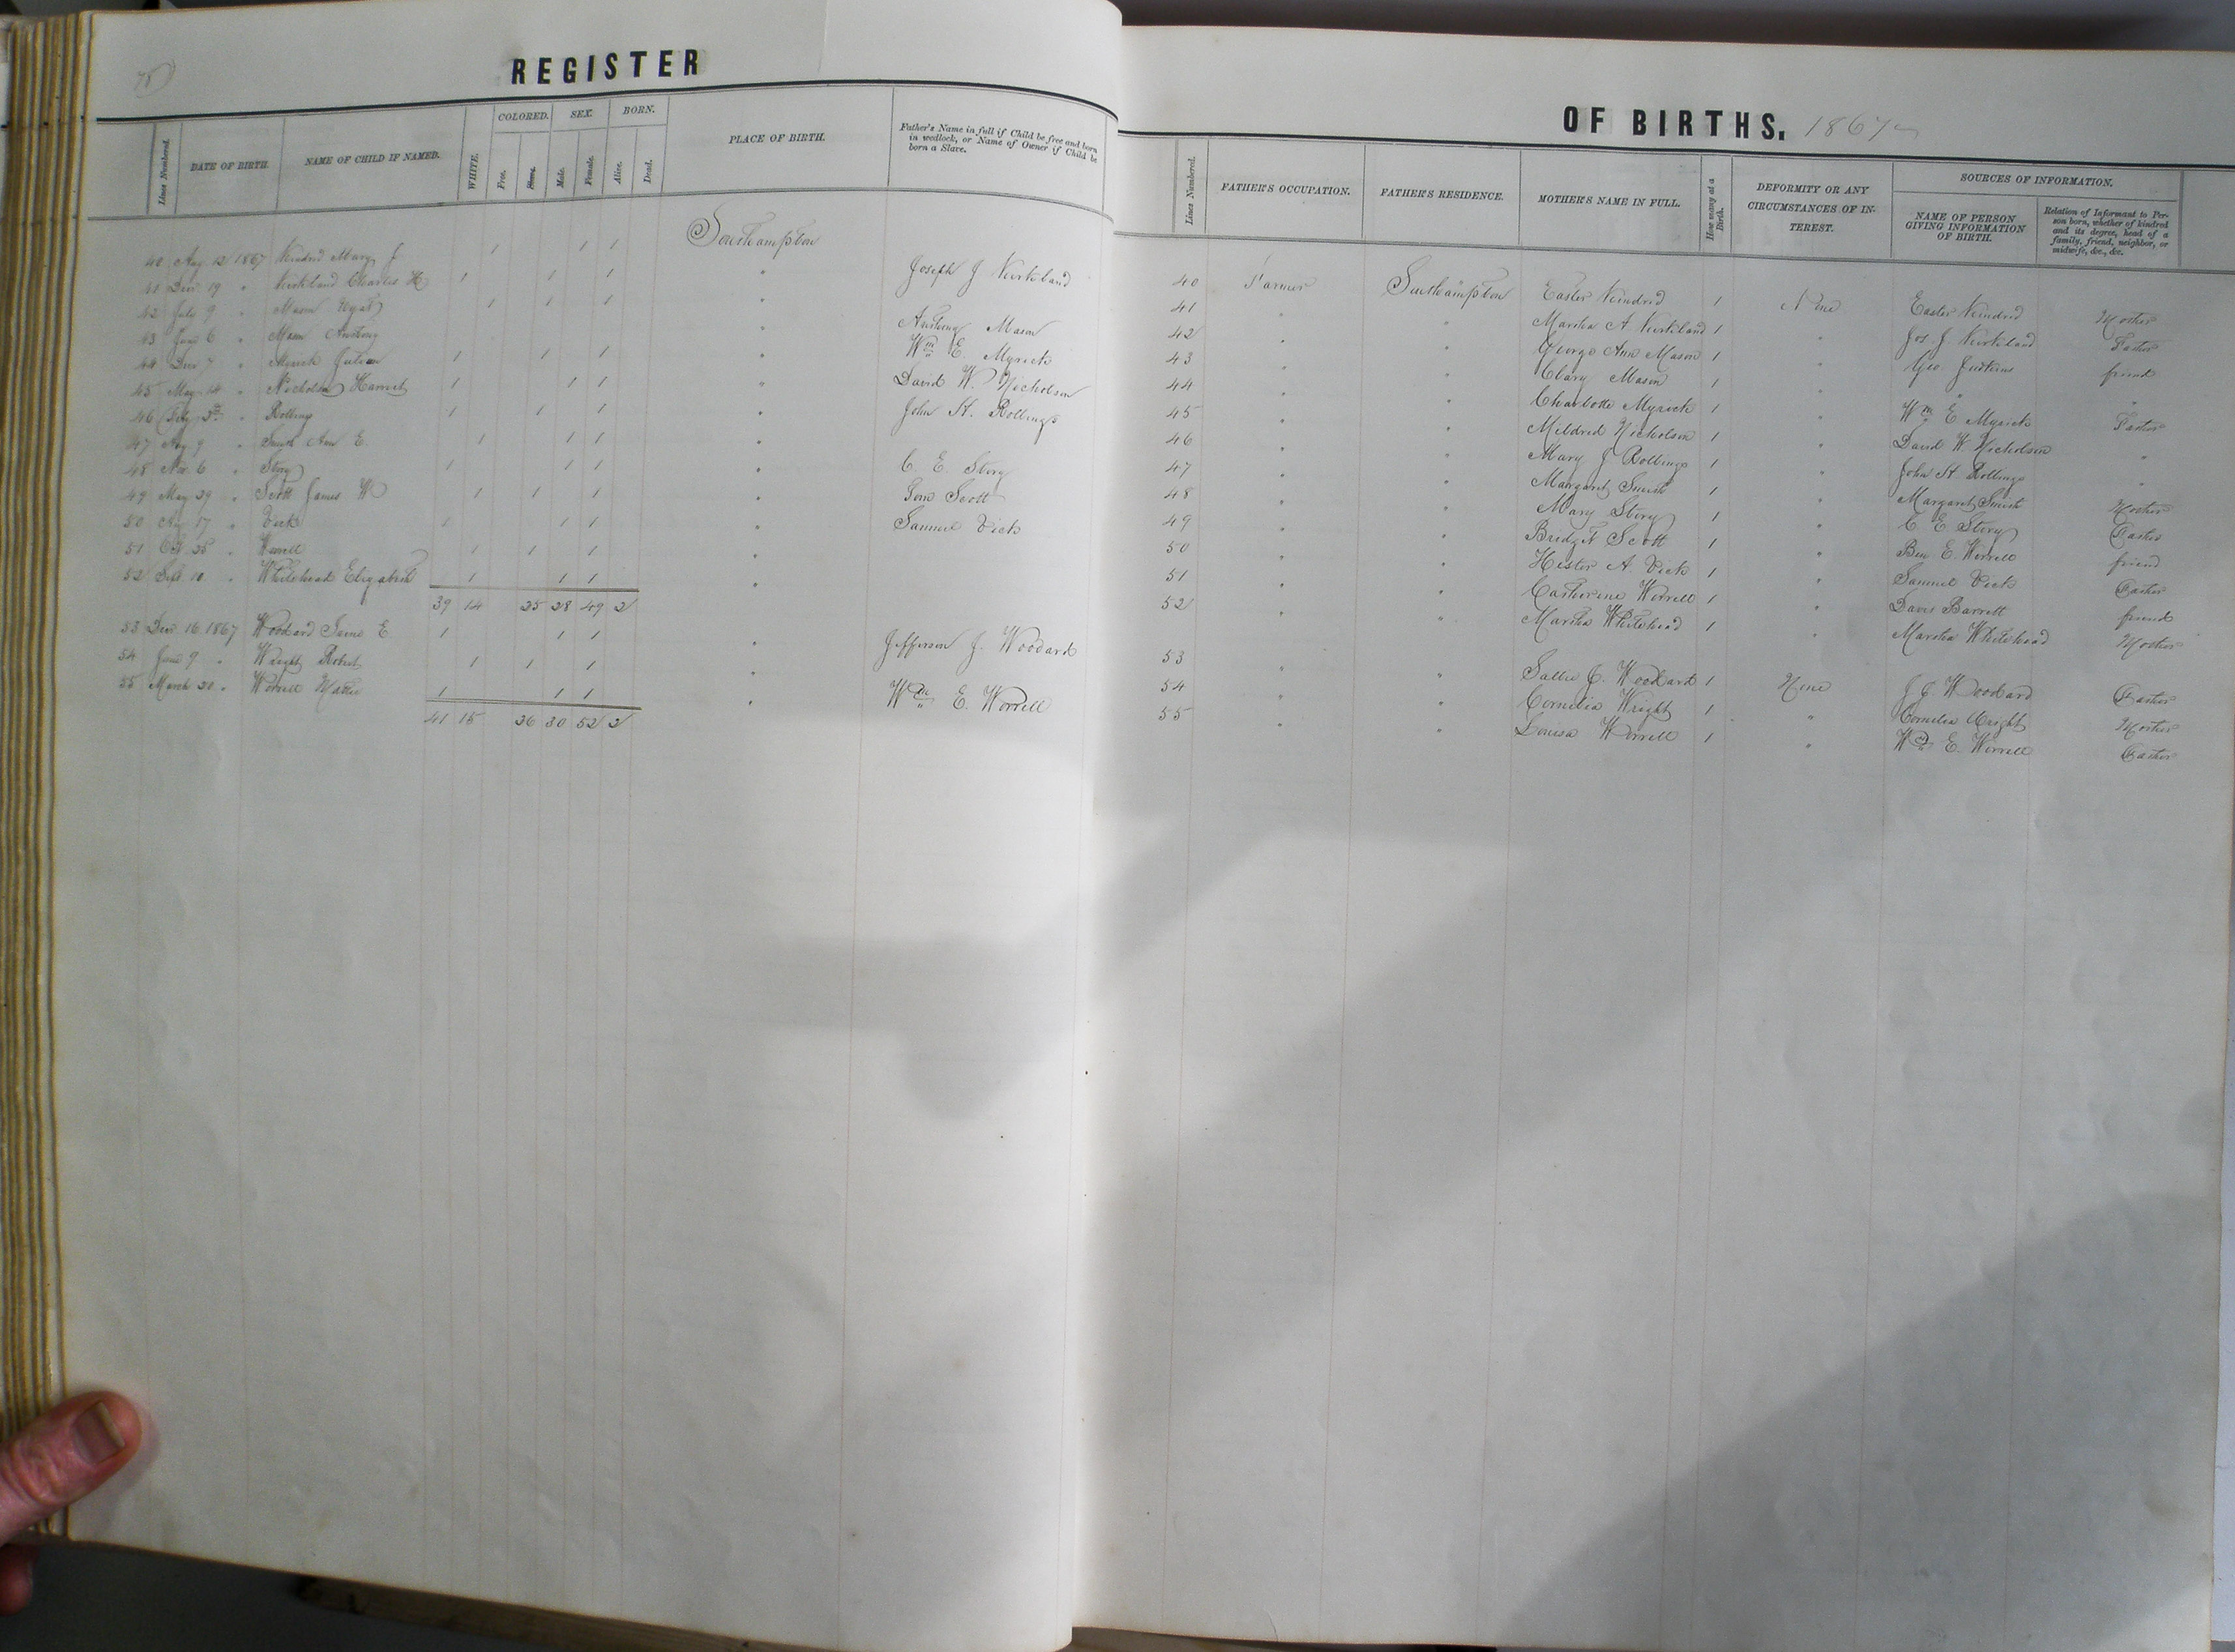 75
REGISTER
Lines Numbered. DATE OF BIRTH. NAME OF CHILD IF NAMED. WHITE. COLORED. Free. Slave. SEX. Male. Female. BORN. Alive. Dead. PLACE OF BIRTH. Father's Name in full if Child be free and born in wedlock, or Name of Owner if Child be born a Slave.
40 Aug 12 1867 Kindred Mary J 1 1 1 Southampton
41 Dec 19 " Kirkland Charles H 1 1 1 " Joseph J Kirkland
42 July 9 " Mason 1 1 1 "
43 June 6 " Mason Anthony " Anthony Mason
44 Dec 7 " Myrick Julian 1 1 1 " Wm E. Myrick
45 May 14 " Nicholson Harriet 1 1 1 " David W. Nicholson
46 " Rollings 1 1 1 " John H. Rollings
47 Aug 9 " Smith Ann E. 1 1 1 "
48 Nov 6 " Story 1 1 1 " C. E. Story
49 May 29 " Scott James W 1 1 1 " Tom Scott
50 Aug 17 " Vick 1 1 1 " Samuel Vick
51 Oct 25 " Worrell 1 1 1 "
52 Sept 10 " Whitehead Elizabeth 1 1 1 "
39 14 25 28 49 2
53 Dec 16 1867 Woodard E. 1 1 1 " Jefferson J. Woodard
54 June 9 " Wright Robert 1 1 1 "
55 March 20 " Worrell 1 1 1 " Wm E. Worrell
41 15 26 30 52 2
OF BIRTHS. 1867
Lines Numbered. FATHER'S OCCUPATION. FATHER'S RESIDENCE. MOTHER'S NAME IN FULL. How many at a Birth. DEFORMITY OR ANY CIRCUMSTANCES OF INTEREST. SOURCES OF INFORMATION. NAME OF PERSON GIVING INFORMATION OF BIRTH. Relation of Informant to Person born, whether of kindred and its degree, head of a family, friend, neighbor, or midwife, &c., &c.
40 Farmer Southampton Easter Kindred 1 None Easter Kindred Mother
41 " " Martha A Kirkland 1 " Jos. J Kirkland Father
42 " " George Ann Mason 1 " Geo Judkins friend
43 " " Clary Mason 1 " " "
44 " " Charlotte Myrick 1 " Wm E Myrick Father
45 " " Mildred Nicholson 1 " David W. Nicholson "
46 " " Mary J Rollings 1 " John H Rollings "
47 " " Margaret Smith 1 " Margaret Smith Mother
48 " " Mary Story 1 " C. E. Story Father
49 " " Bridget Scott 1 " Ben E. Worrell friend
50 " " Hester A. Vick 1 " Samuel Vick Father
51 " " Catherine Worrell 1 " Davis Barrett friend
52 " " Martha Whitehead 1 " Martha Whitehead Mother
53 " " Sallie J. Woodard 1 None J J. Woodard Father
54 " " Cornelia Wright 1 " Cornelia Wright Mother
55 " " Louisa Worrell 1 " Wm E. Worrell Father